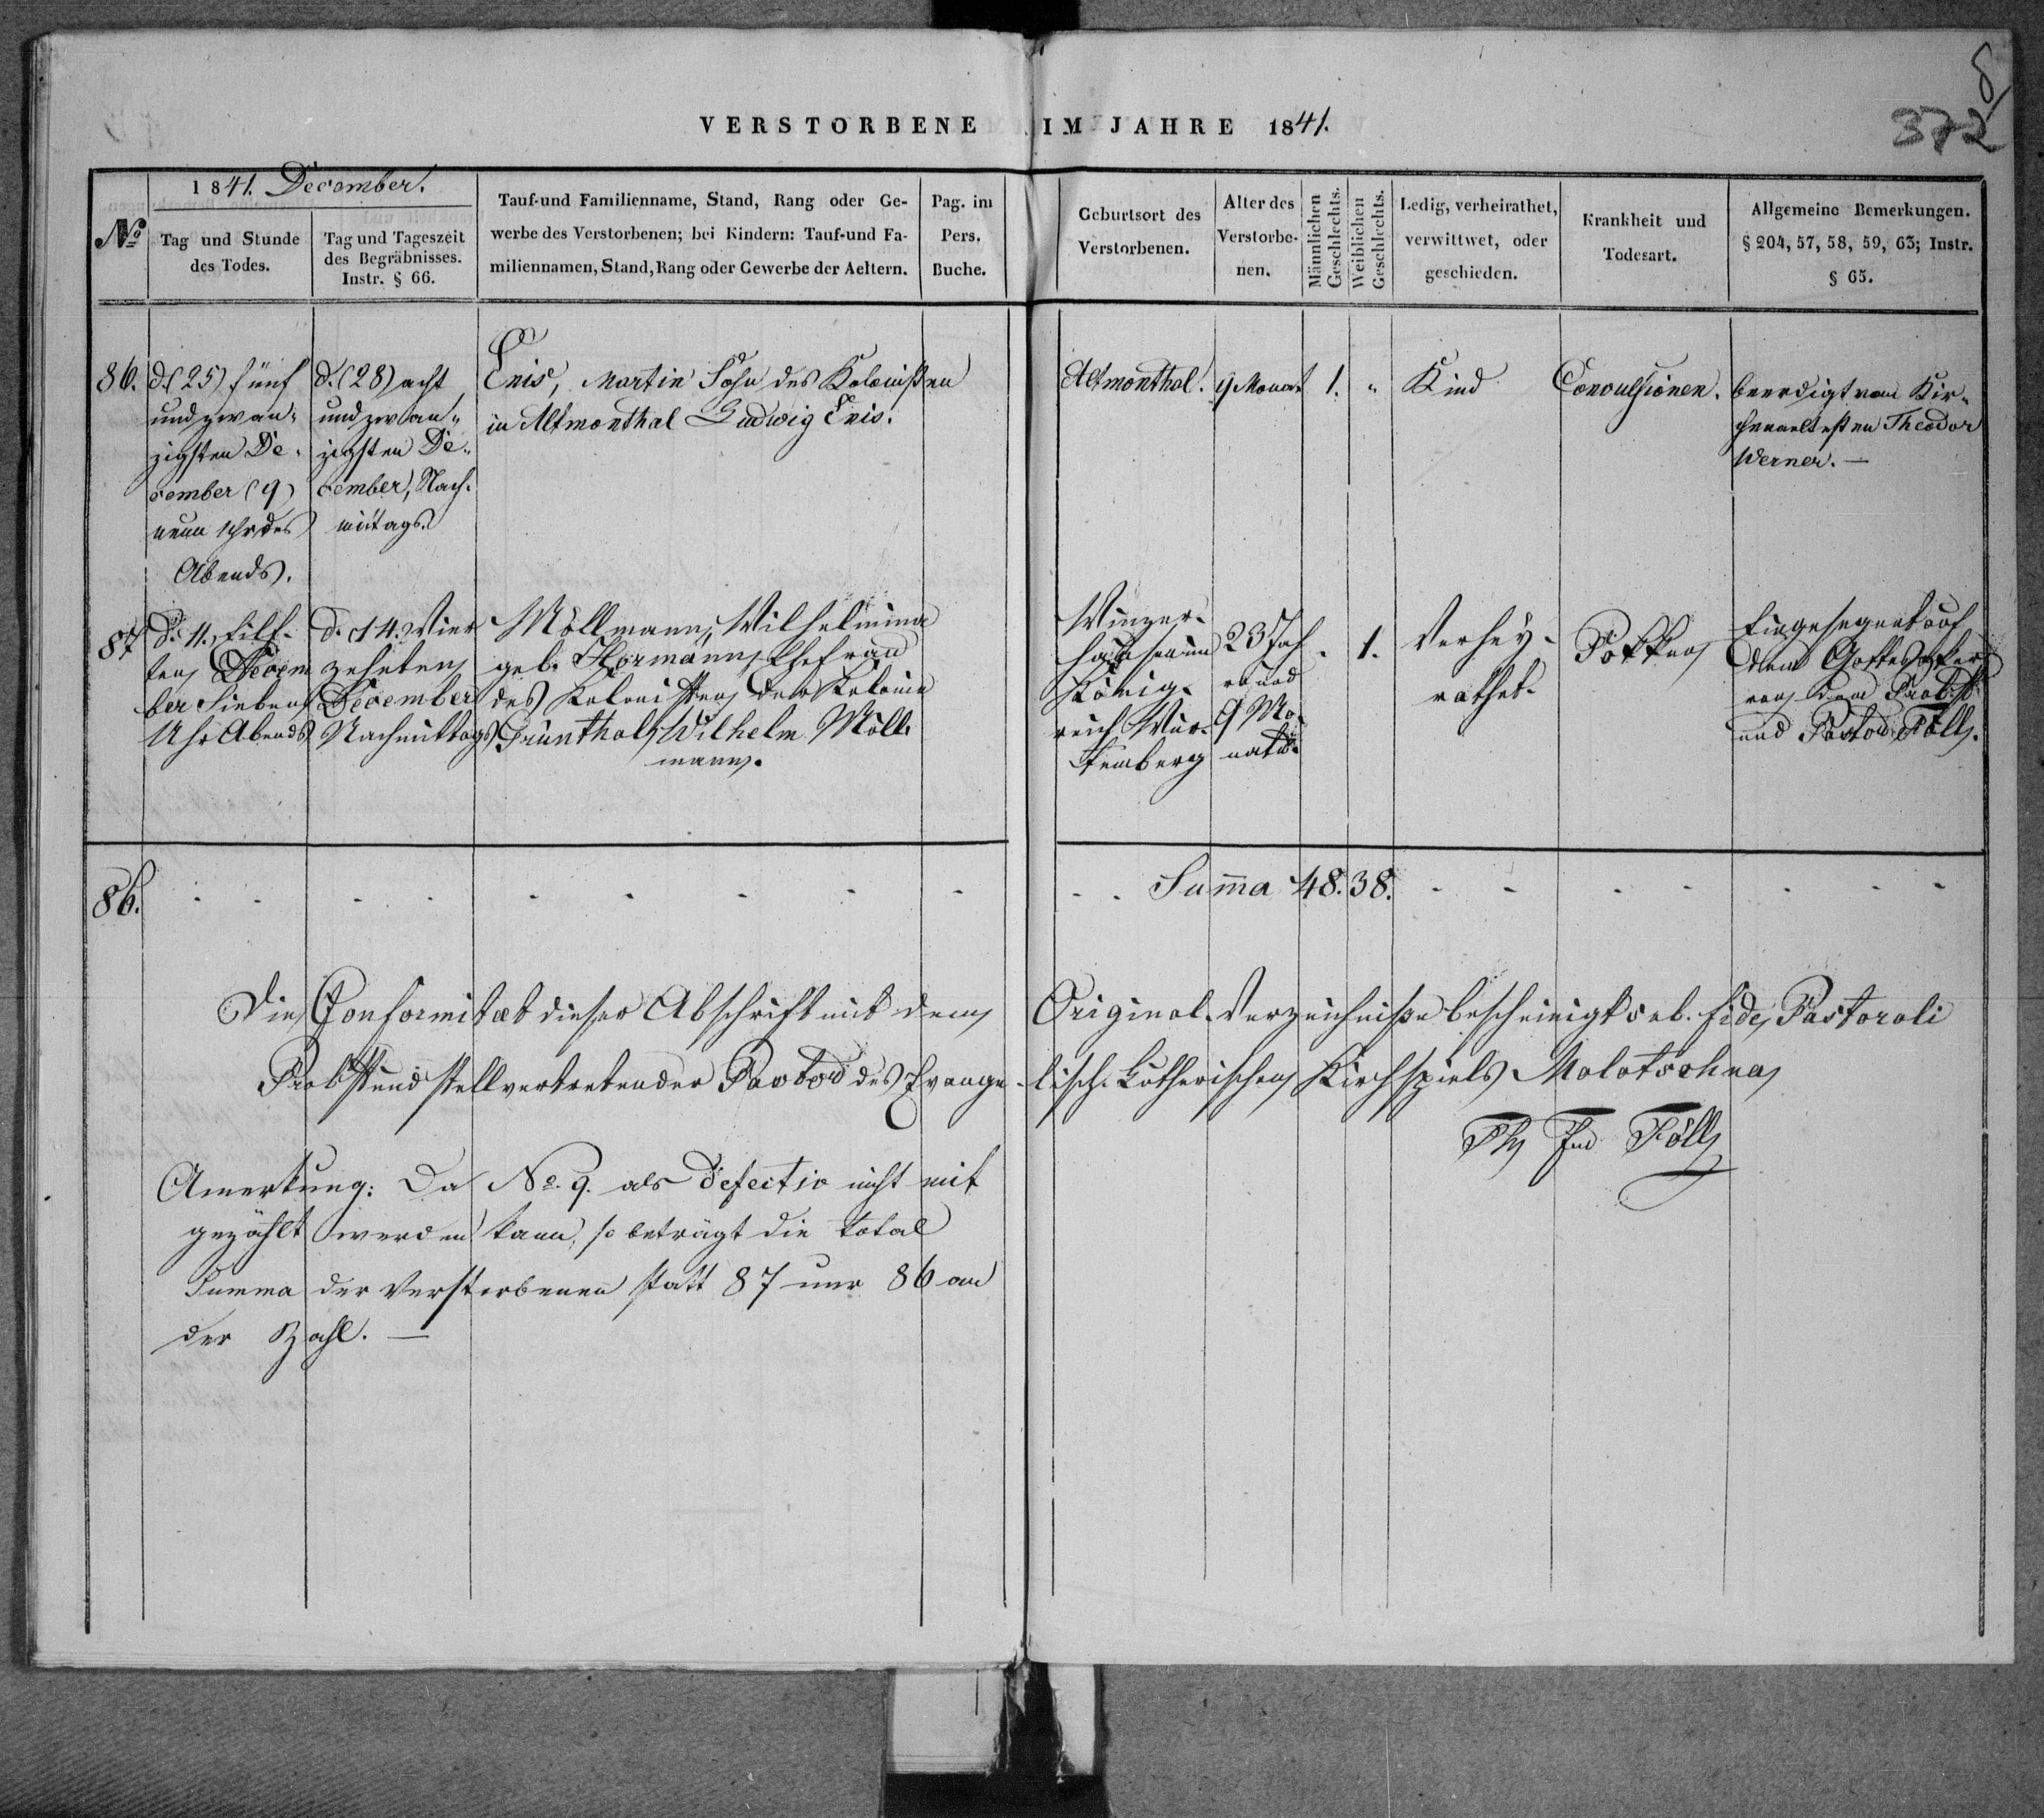 8
372
VERSTORBENE IM JAHRE 1841.
№
1841. December.
Tag und Stunde
des Todes.
Tag und Tageszeit
des Begräbnisses.
Instr. § 66.
Tauf-und Familienname, Stand, Rang oder Ge-
werbe des Verstorbenen; bei Kindern: Tauf-und Fa-
miliennamen, Stand, Rang oder Gewerbe der Aeltern.
Pag. im
Pers.
Buche.
Geburtsort des
Verstorbenen.
Alter des
Verstorbe-
nen.
Männlichen
Geschlechts.
Weiblichen
Geschlechts.
Ledig, verheirathet,
verwittwet, oder
geschieden.
Krankheit und
Todesart.
Allgemeine Bemerkungen.
§ 204, 57, 58, 59, 63; Instr.
§ 65.
86.
d. (25) fünf
und zwan-
zigsten De-
cember (9)
neun Uhr des
Abends.
d. (28) acht
und zwan-
zigsten De-
cember, Nach-
mittags.
Enis, Martin Sohn des Kolonisten
in Altmonthal Ludwig Enis.
Altmonthal.
9 Monat
1.
"
Kind
Convulsionen.
beerdigt vom Kir-
chenaeltesten Theodor
Werner. —
87
D. 11. Eilf-
ten Decem
ber Sieben
Uhr Abends
d. 14. Vier
zehnten
December
Nachmittags
Möllmann, Wilhelmina
geb. Hörmann Ehefrau
des Kolonisten der Kolonie
Prünthal, Wilhelm Möll-
mann.
Winzer-
hausen im
König-
reich Wür-
temberg
23 Jah
re und
9 Mo-
nate.
-
1.
Verhey-
rathet.
Pokken
Eingesegnet auf
dem Gottesaker
von dem Probst
und Pastor Föll.
86.
Summa 48. 38.
Die Conformitaet dieser Abschrift mit dem Original-Verzeichnisse bescheinigt sub. fide Pastorali
Probst und stellvertretender Pastor des Evange-lisch-Lutherischen Kirchspiels Molotschna
Föll
Amerkung: Da No. 9. als defectiv nicht mit
gezählt werden kann, so beträgt die total
Summa der Verstorbenen statt 87 nur 86 an
der Zahl. —